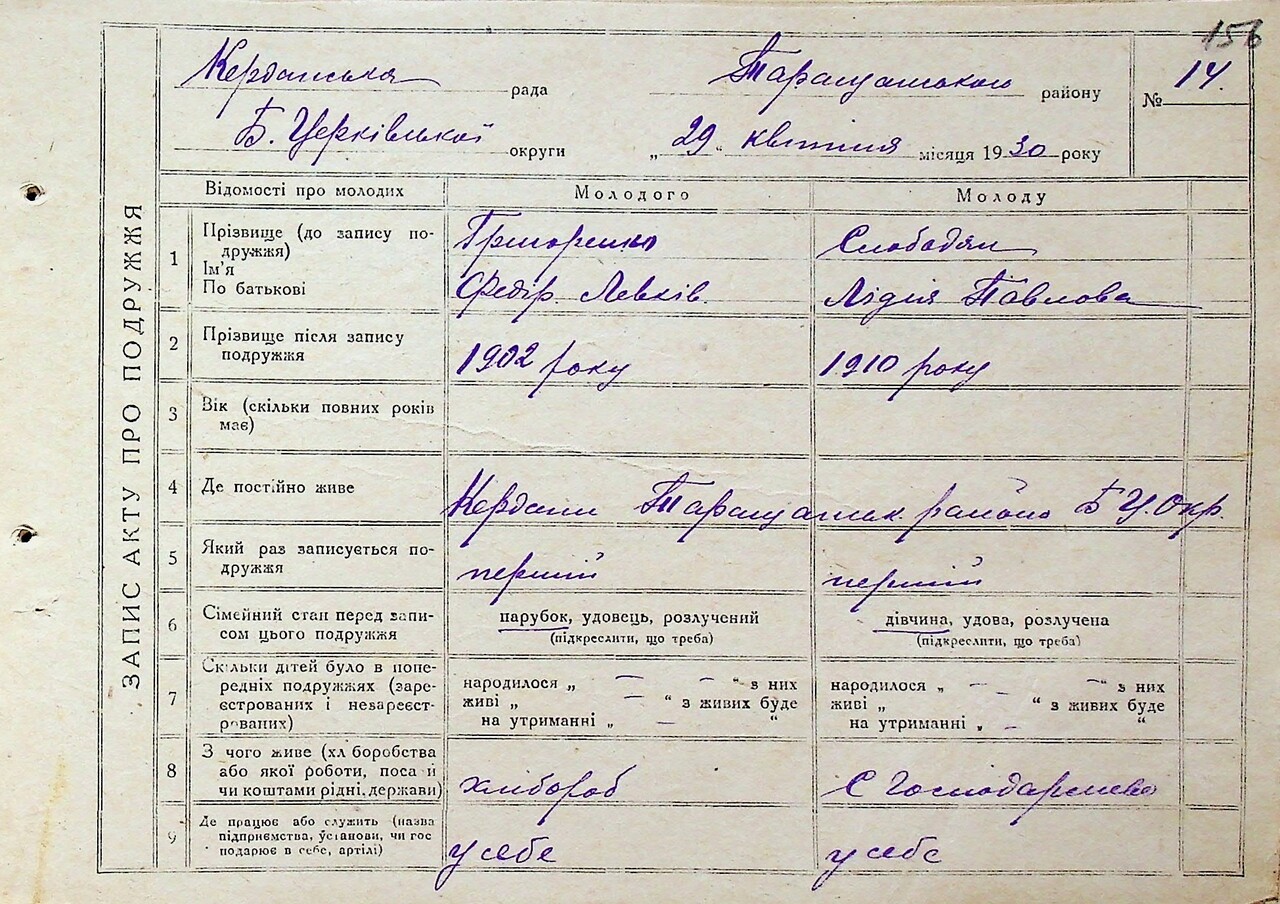 156
Керданська рада Таращанського району № 14.
Б. Церківської округи „29“ квітня місяця 1930 року
ЗАПИС АКТУ ПРО ПОДРУЖЖЯ
Відомості про молодих Молодого Молоду
1 Прізвище (до запису по-
дружжя) Григоренко Слободян
Ім'я
По батькові Федір Левків. Лідія Павлова
2 Прізвище після запису
подружжя 1902 року 1910 року
3 Вік (скільки повних років
має)
4 Де постійно живе Кердани Таращанськ. району Б Ц. Окр.
5 Який раз записується по-
дружжя перший перший
6 Сімейний стан перед запи-
сом цього подружжя
парубок, удовець, розлучений дівчина, удова, розлучена
(підкреслити, що треба) (підкреслити, що треба)
7 Скільки дітей було в попе-
редніх подружжях (заре-
єстрованих і незареєст-
рованих)
народилося „ — — “ з них народилося „ — — “ з них
живі „ — “ з живих буде живі „ “ з живих буде
на утриманні „ — “ на утриманні „ — “
8 З чого живе (хл боробства
або якої роботи, поса и
чи коштами рідні, держави) хлібороб С Господарством
9 Де працює або служить (назва
підприємства, установи, чи гос
подарює в себе, артілі) у себе у себе